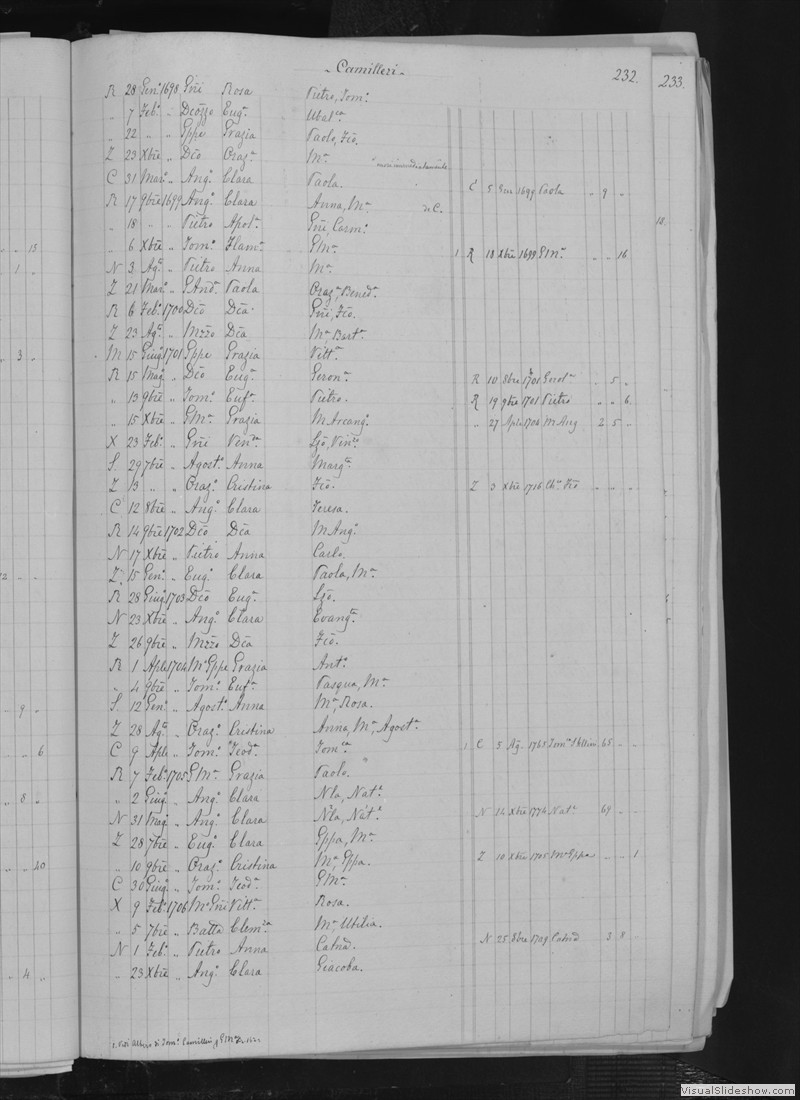 Camilleri
232.
233.
R 28 Gen.º 1698 Gñi Rosa Pietro, Tom.º
„ 7 Feb.º „ Dcozzo Eug.ª Ubal.ca
„ 22 „ „ Gppe Grazia Paolo, Fcō.
Z 23 Xbre „ Dcō Oraz.ª M.ª
C 31 Mar.º „ Ang.º Clara Paola. C 5 Gen 1699 Paola „ 9 „
R 17 9bre 1699 Ang.º Clara Anna, M.ª di C.
„ 18 „ „ Pietro Apol.ª Gñi, Carm.º 18.
„ 6 Xbre „ Tom.º Flam.ª GMª. 1 R 18 Xbre 1699 GMª. „ „ 16
N 3 Ag.º „ Pietro Anna M.ª
Z 21 Mar.º „ GAnd.ª Paola Oraz.ª, Bened.ª
R 6 Feb.º 1700 Dcō Dca Gñi, Fcō.
Z 23 Ag.º „ Mzzo Dca M.ª Bart.ª
M 15 Giug.º 1701 Gppe Grazia Vitt.ª
R 15 Mag. „ Dcō Eug.ª Geron.ª R 10 8bre 1701 Gerol.ª „ 5 „
„ 13 9bre „ Tom.º Euf.ª Pietro. R 19 9bre 1701 Pietro „ „ 6.
„ 15 Xbre „ GMª. Grazia M.Arcang.ª „ 27 Aple 1704 M Ang 2 5 „
X 23 Feb.º „ Gñi Vin.za Lzō, Vin.zo
S. 29 7bre „ Agost.º Anna Marg.ª
Z 13 „ „ Oraz.º Cristina Fcō. Z 3 Xbre 1716 Ch.º Fcō „ „ „
C 12 8bre „ Ang.º Clara Teresa.
R 14 9bre 1702 Dcō Dca M Ang.ª
N 17 Xbre „ Pietro Anna Carlo.
Z 15 Gen.º „ Eug.º Clara Paola, M.ª
R 28 Giug.º 1703 Dcō Eug.ª Lzō.
N 23 Xbre „ Ang.º Clara Evang.ta
Z 26 9bre „ Mzzo Dca Fcō.
R 1 Aple 1704 M.º Gppe Grazia Ant.º
„ 4 9bre „ Tom.º Euf.ª Pasqua, M.ª
S. 12 Gen.º „ Agost.º Anna M.ª, Rosa.
Z 28 Ag.º „ Oraz.º Cristina Anna, M.ª, Agost.ª
C 9 Aple „ Tom.º Teod.ª Tom.ª 1 C 5 Ag. 1765 65 „
R 7 Feb.º 1705 GMª. Grazia Paolo.
„ 2 Giug.º „ Ang.º Clara Nla, Nat.e
N 31 Mag. „ Ang.º Clara Nla, Nat.e N 14 Xbre 1774 Nat.e 69 „
Z 28 7bre „ Eug.º Clara Gppa, M.ª
„ 10 9bre „ Oraz.º Cristina M.ª, Gppa. Z 10 Xbre 1705 M.ª Gppa „ „ 1
C 30 Giug.º „ Tom.º Teod.ª GMª.
X 9 Feb.º 1706 M.º Gñi Vitt.ª Rosa.
„ 5 7bre „ Batta Clem.za M.ª, Ubilia.
N 1 Feb.º „ Pietro Anna Catna. N 25 8bre 1709 Catna 3 8
„ 23 Xbre „ Ang.º Clara Giacoba.
1. Vedi Albero di Tom.º Camilleri
VisualSlideshow.com